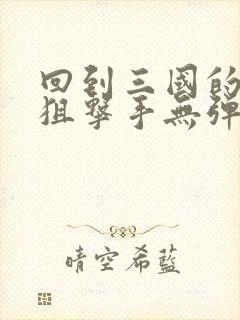 回到三國的
狙擊手無彈
晴空希藍